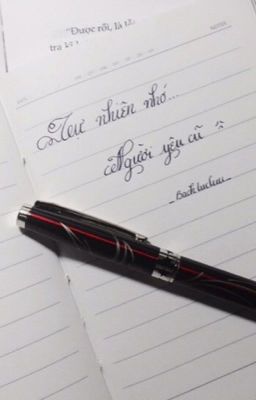 "Được rồi, là
tra
Tự nhiên nhớ...
Người yêu cũ ^^
_Bachluuluu_